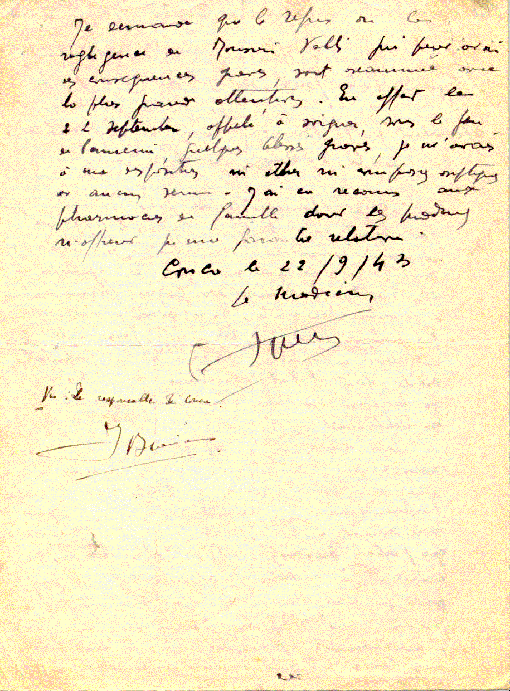 Je demande que le refus ou la
negligence de Monsieur Valli qui peut avoir
des conséquences graves, soit examiné avec
la plus grande attention. En effet le
22 septembre, appelé à soigner, sous le feu
de l'ennemi, quelques blessés graves, je n'avais
à ma disposition ni ether ni antiseptiques
ou aucun serum. J'ai eu recours aux
pharmacies de famille dont les produits
n'offrent qu'une garantie relative.
le 22/9/43
le medecin
Vu: le responsable de